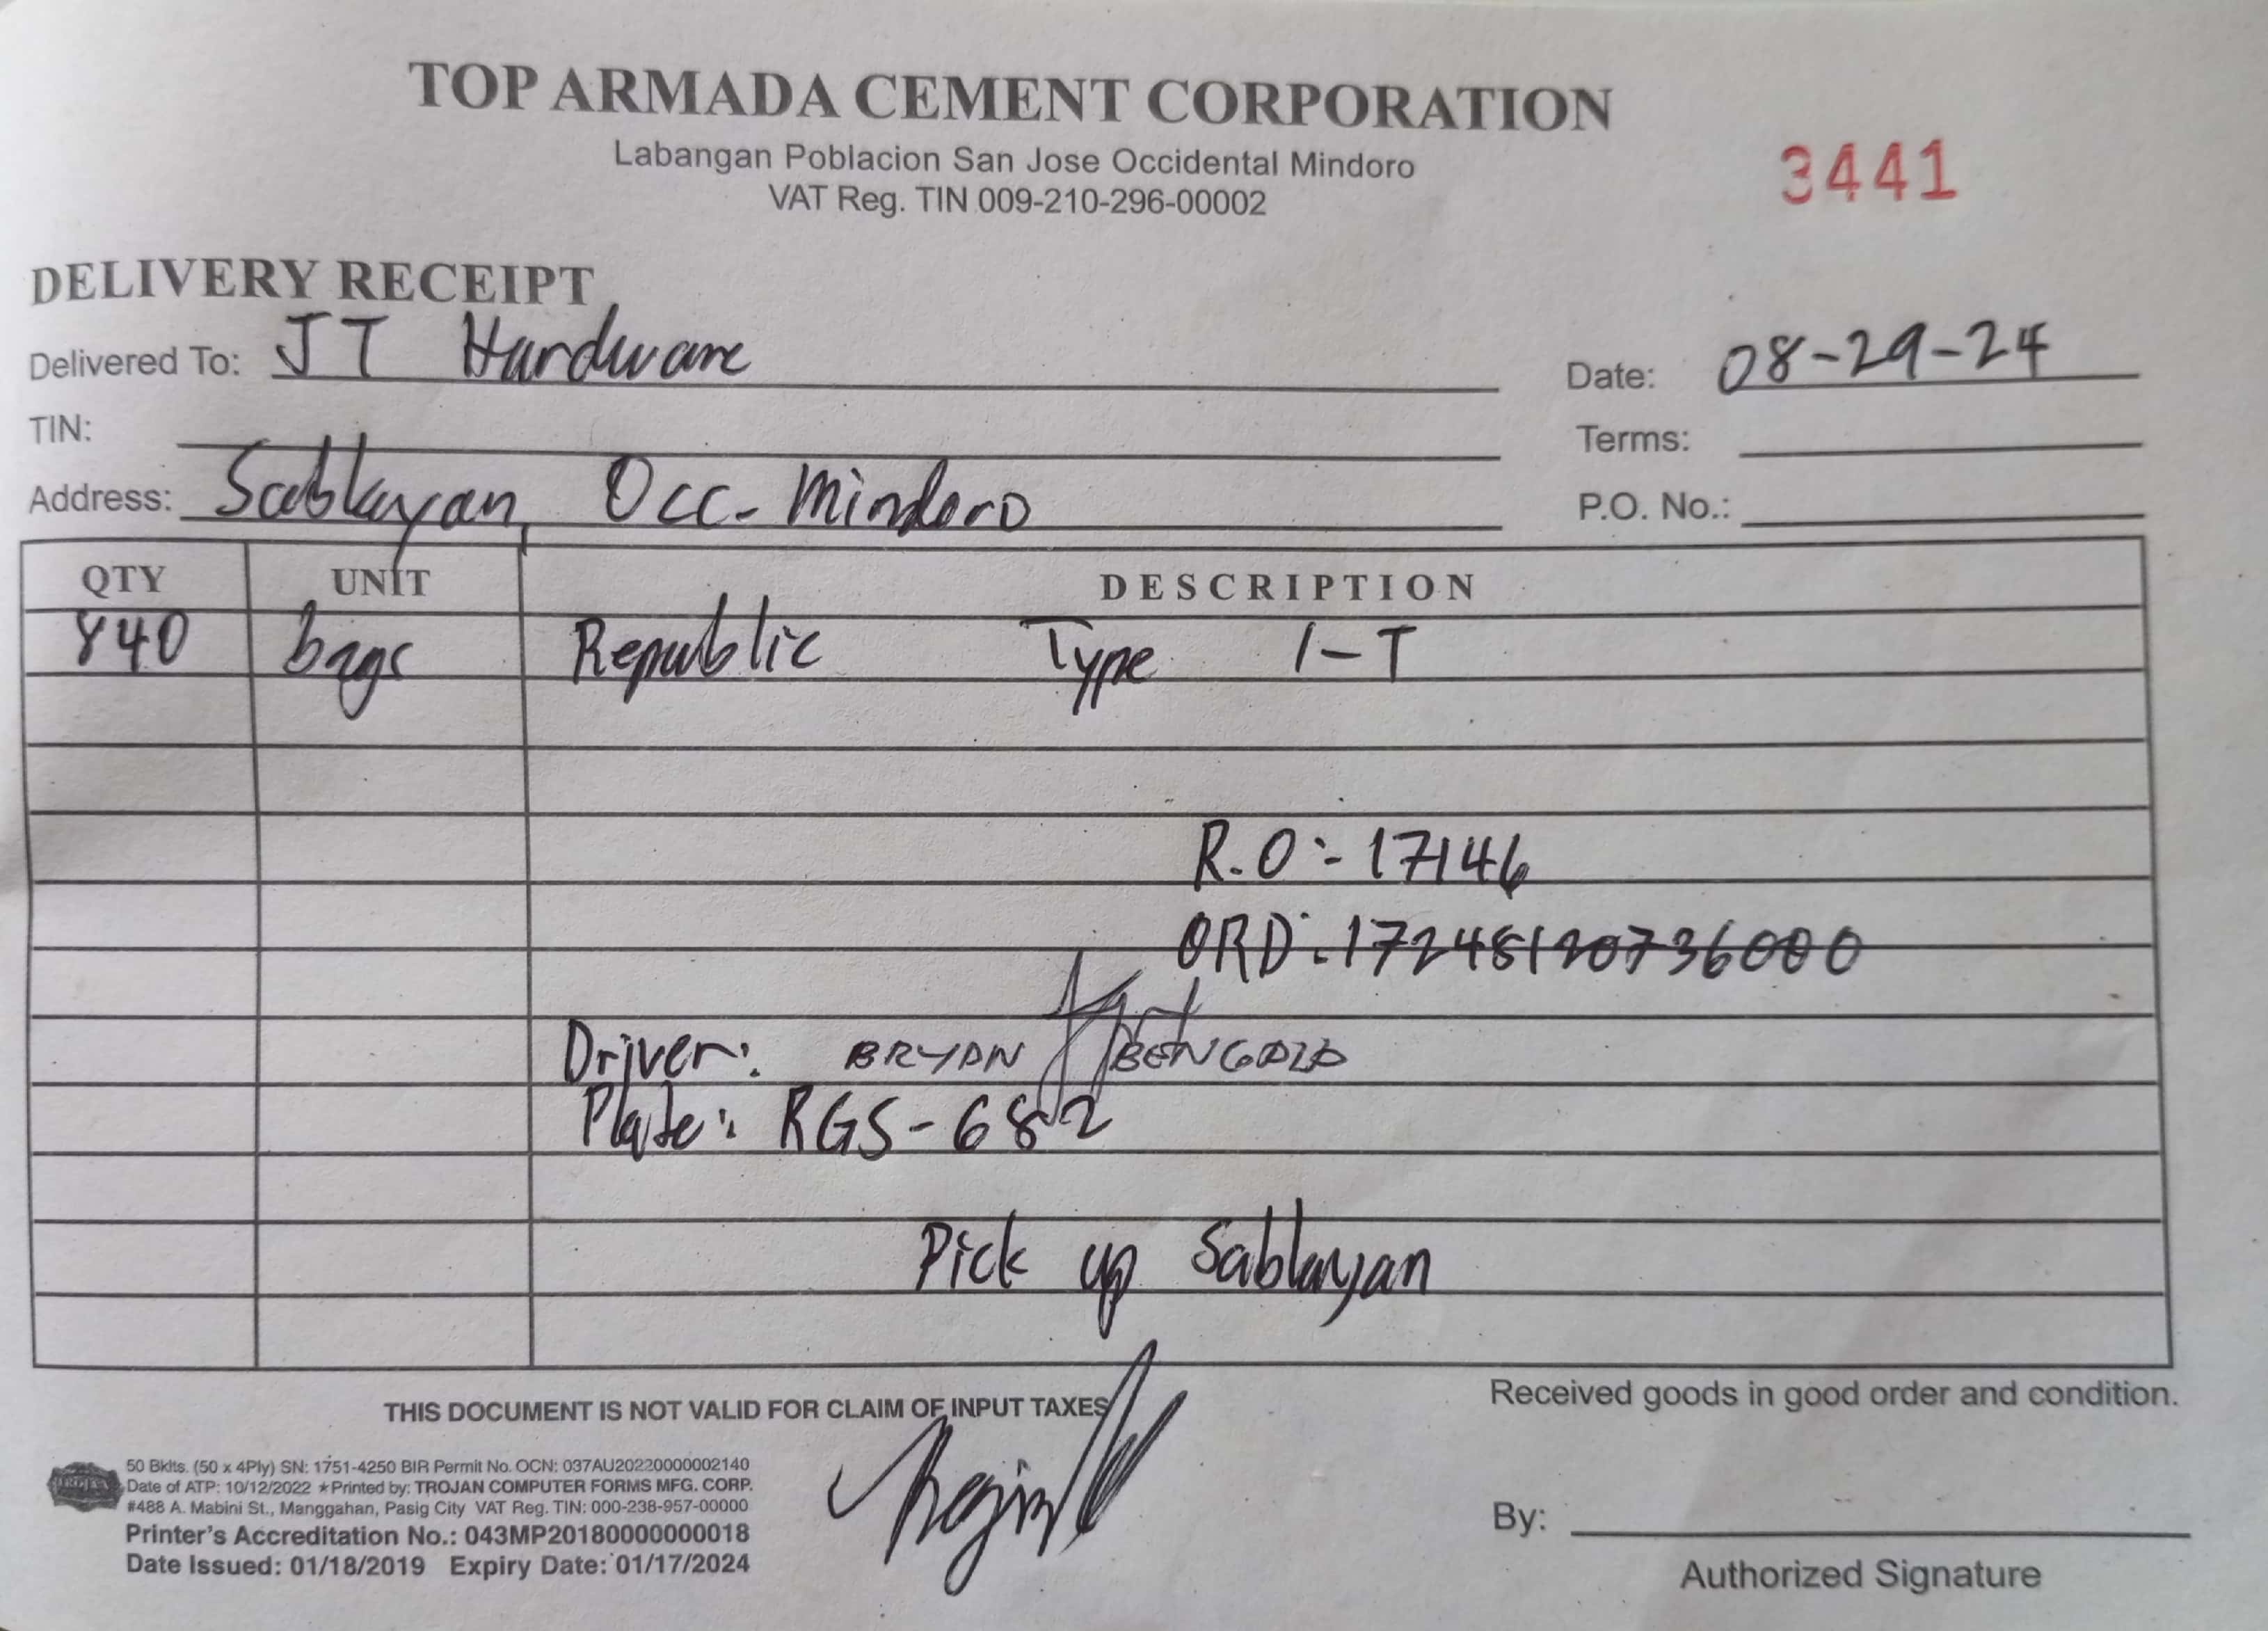 TOP ARMADA CEMENT CORPORATION
Labangan Poblacion San Jose Occidental Mindoro
VAT Reg. TIN 009-210-296-00002
3441
DELIVERY RECEIPT
Delivered To: JT Hardware
Date: 08-29-24
TIN:
Terms:
Address: Sablayan, Occ. Mindoro
P.O. No.:
QTY UNIT DESCRIPTION
840 bags Republic Type 1-T
R.O:- 17146
ORD: 17248120736000
Driver: BRYAN
Plate: RGS-682
Pick up Sablayan
THIS DOCUMENT IS NOT VALID FOR CLAIM OF INPUT TAXES
Received goods in good order and condition.
50 Bklts. (50 x 4Ply) SN: 1751-4250 BIR Permit No. OCN: 037AU20220000002140
Date of ATP: 10/12/2022 ★Printed by: TROJAN COMPUTER FORMS MFG. CORP.
#488 A. Mabini St., Manggahan, Pasig City VAT Reg. TIN: 000-238-957-00000
Printer's Accreditation No.: 043MP20180000000018
Date Issued: 01/18/2019 Expiry Date: 01/17/2024
By:
Authorized Signature